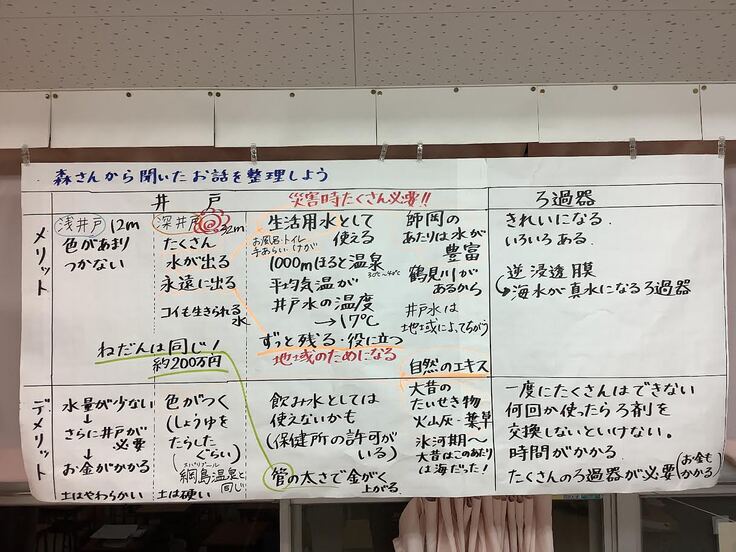 森さんから聞いたお話を整理しよう
井戸
災害時たくさん必要!!
ろ過器
メリット
浅井戸 12m
色があまり
つかない
深井戸 32m
たくさん
水が出る
永遠に出る
コイも生きられる
水
ねだんは同じ!
約200万円
生活用水として
使える
お風呂・トイレ
手あらい・けが
1000mほると温泉
30℃~40℃
平均気温が
井戸水の温度
→17℃
ずっと残る・役に立つ
地域のためになる
師岡の
あたりは水が
豊富
鶴見川が
あるから
井戸水は
地域によってちがう
自然のエキス
きれいになる.
いろいろある.
逆浸透膜
海水が真水になるろ過器
デメリット
水量が少ない
↓
さらに井戸が
必要
↓
お金がかかる
土はやわらかい
色がつく
(しょうゆを
たらした
ぐらい)
綱島温泉と
同じ
土は硬い
飲み水としては
使えないかも
(保健所の許可が
いる)
管の太さで金がく
上がる.
大昔の
たいせき物
火山灰・薬草
氷河期~
大昔はこのあたり
は海だった!
一度にたくさんはできない
何回か使ったらろ剤を
交換しないといけない.
時間がかかる.
たくさんのろ過器が必要(お金も
かかる)